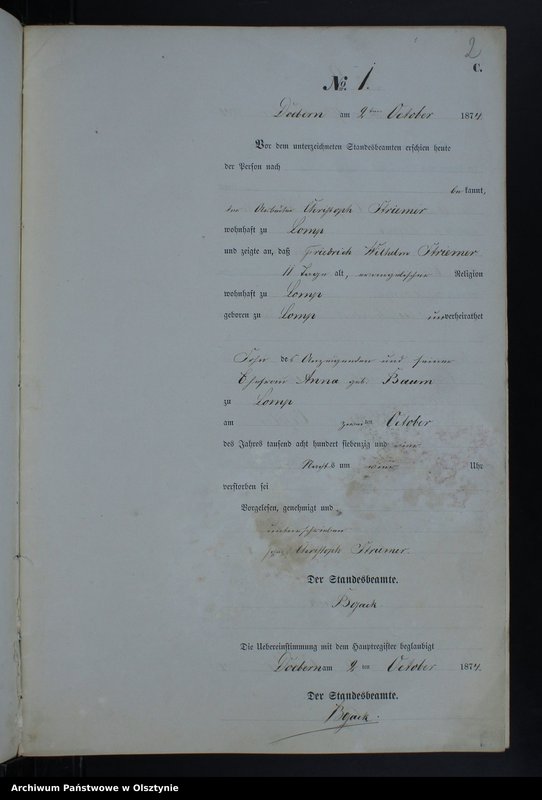 2
C.
No. 1.
Döbern am 2ten October 1874
Vor dem unterzeichneten Standesbeamten erschien heute
der Person nach
kannt,
der Arbeiter Christoph Striemer
wohnhaft zu Lomp
und zeigte an, daß Friedrich Wilhelm Striemer
11 Tage alt, evangelischer Religion
wohnhaft zu Lomp
geboren zu Lomp unverheirathet
Sohn des Anzeigenden und seiner
Ehefrau Anna geb. Baum
zu Lomp
am zweiten October
des Jahres tausend acht hundert siebenzig und vier
Nachts um Uhr
verstorben sei
Vorgelesen, genehmigt und
unterschrieben
Christoph Striemer.
Der Standesbeamte.
Die Uebereinstimmung mit dem Hauptregister beglaubigt
Döbern am 2 ten October 1874.
Der Standesbeamte.
Archiwum Państwowe w Olsztynie